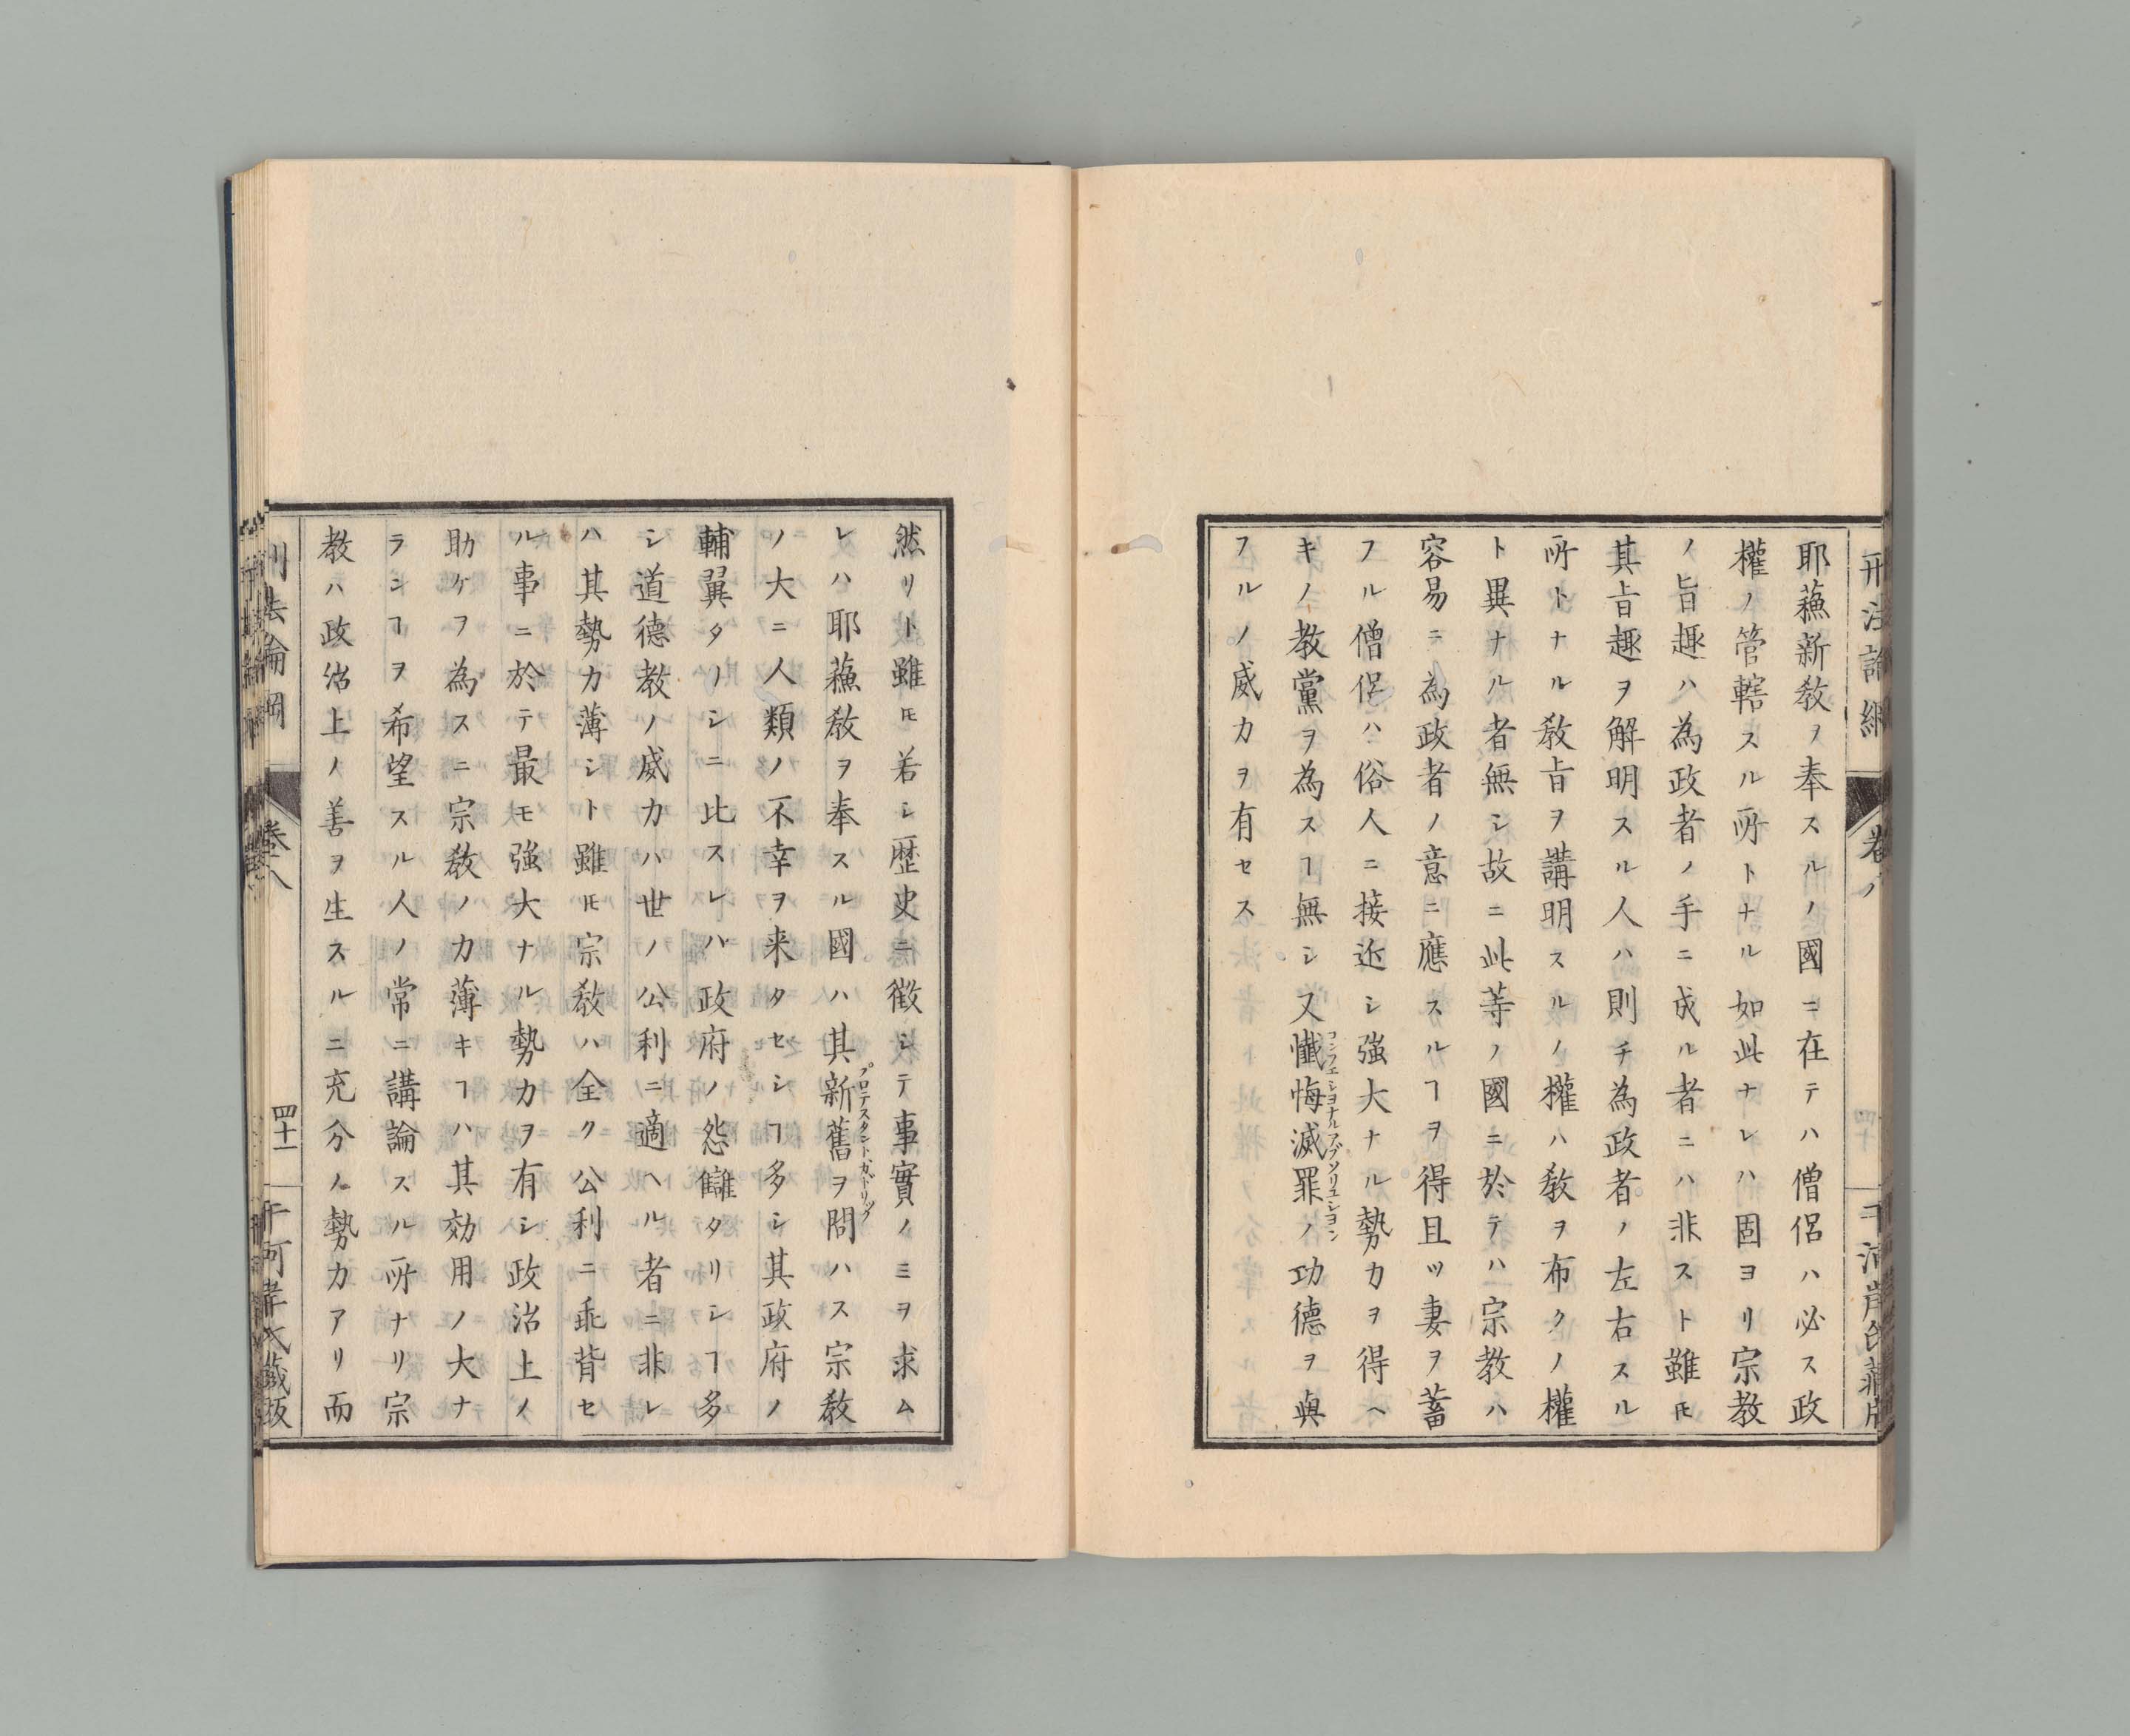 耶蘓新敎ヲ奉スルノ國ニ在テハ僧侶ハ必ス政
權ノ管轄スル所トナル如此ナレハ固ヨリ宗教
ノ旨趣ハ為政者ノ手ニ成ル者ニハ非スト雖𪜈
其旨趣ヲ解明スル人ハ則チ為政者ノ左右スル
所トナル敎旨ヲ講明スルノ權ハ敎ヲ布クノ權
ト異ナル者無シ故ニ此等ノ國ニ於テハ宗教ハ
容易ニ為政者ノ意ニ應スルヿヲ得且ツ妻ヲ蓄
フル僧侶ハ俗人ニ接近シ強大ナル勢力ヲ得ヘ
キノ教黨ヲ為スヿ無シ又懺悔滅罪ノ功德ヲ與
コンフェシヨナルアブソリユシヨン
フルノ威力ヲ有セス
然リト雖𪜈若シ歴史ニ徴シテ事實ノミヲ求ム
レハ耶蘓敎ヲ奉スル國ハ其新舊ヲ問ハス宗敎
プロテスタントカトリック
ノ大ニ人類ノ不幸ヲ来タセシヿ多シ其政府ノ
輔翼タノシニ比スレハ政府ノ怨讎タリシヿ多
シ道德教ノ威力ハ世ノ公利ニ適ヘル者ニ非レ
ハ其勢力薄シト雖𪜈宗敎ハ全ク公利ニ乖背セ
ル事ニ於テ最モ強大ナル勢力ヲ有シ政治上ノ
助ケヲ為スニ宗敎ノ力薄キヿハ其効用ノ大ナ
ランヿヲ希望スル人ノ常ニ講論スル所ナリ宗
教ハ政治上ノ善ヲ生スルニ充分ノ勢力アリ而
卷八
四十一